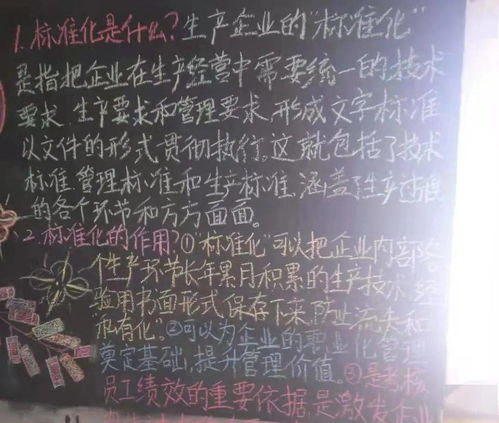 1.标准化是什么?生产企业的"标准化"
是指把企业在生产经营中需要统一的技术
要求、生产要求和管理要求,形成文字标准
以文件的形式贯彻执行。这就包括了技术
标准、管理标准和生产标准,涵盖了生产过程
的各个环节和方方面面。
2.标准化的作用?①"标准化"可以把企业内部各
个生产环节长年累月积累的生产技术、经
验用书面形式保存下来,防止流失和
私有化"②可以为企业的专业化管理
奠定基础,提升管理价值。③是考核
员工绩效的重要依据,是激发企业